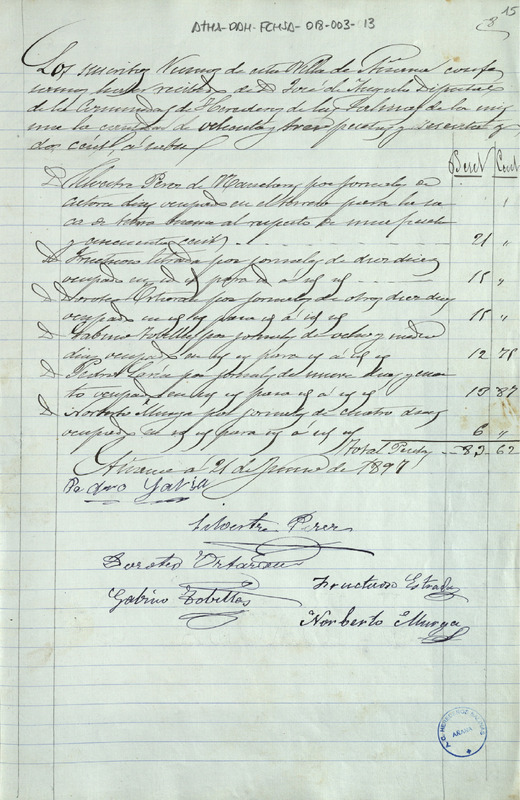 ATHA-DAH-FCHSA-018-003-13
15
8
Los suscritos Vecinos de esta Villa de Añana confe
samos haber recibido de D. Jose de Angulo Diputado
de la Comunidad de Herederos de las Salinas de la mis
ma la cantidad de ochenta y tres pesetas y sesenta y
dos cent.s á saber
Peset Cent
D. Silvestre Perez de Manclares por jornales de
catorce dias ocupado en el terreno para la sa
ca de tierra buena al respeto de una peseta
y cincuenta cent.s 21 "
D. Fructuoso Estrada por jornales de diez dias
ocupado en id id para id á id id 15 "
D. Doroteo Ortaran por jornales de otros diez dias
ocupado en id id para id á id id 15 "
D. Gabino Tobillas por jornales de ocho y medio
dias ocupado en id id para id á id id 12 75
D. Pedro Gavia por jornales de nueve dias y cuar
to ocupado en id id para id á id id 13 87
D. Norberto Murga por jornales de cuatro dias
ocupado en id id para id á id id 6 "
Total Pesetas 83 62
Añana á 21 de Junio de 1897
Pedro Gavia
Silvestre Perez
Doroteo Ortaran
Gabino Tobillas
Fructuoso Estrada
Norberto Murga
ARABA